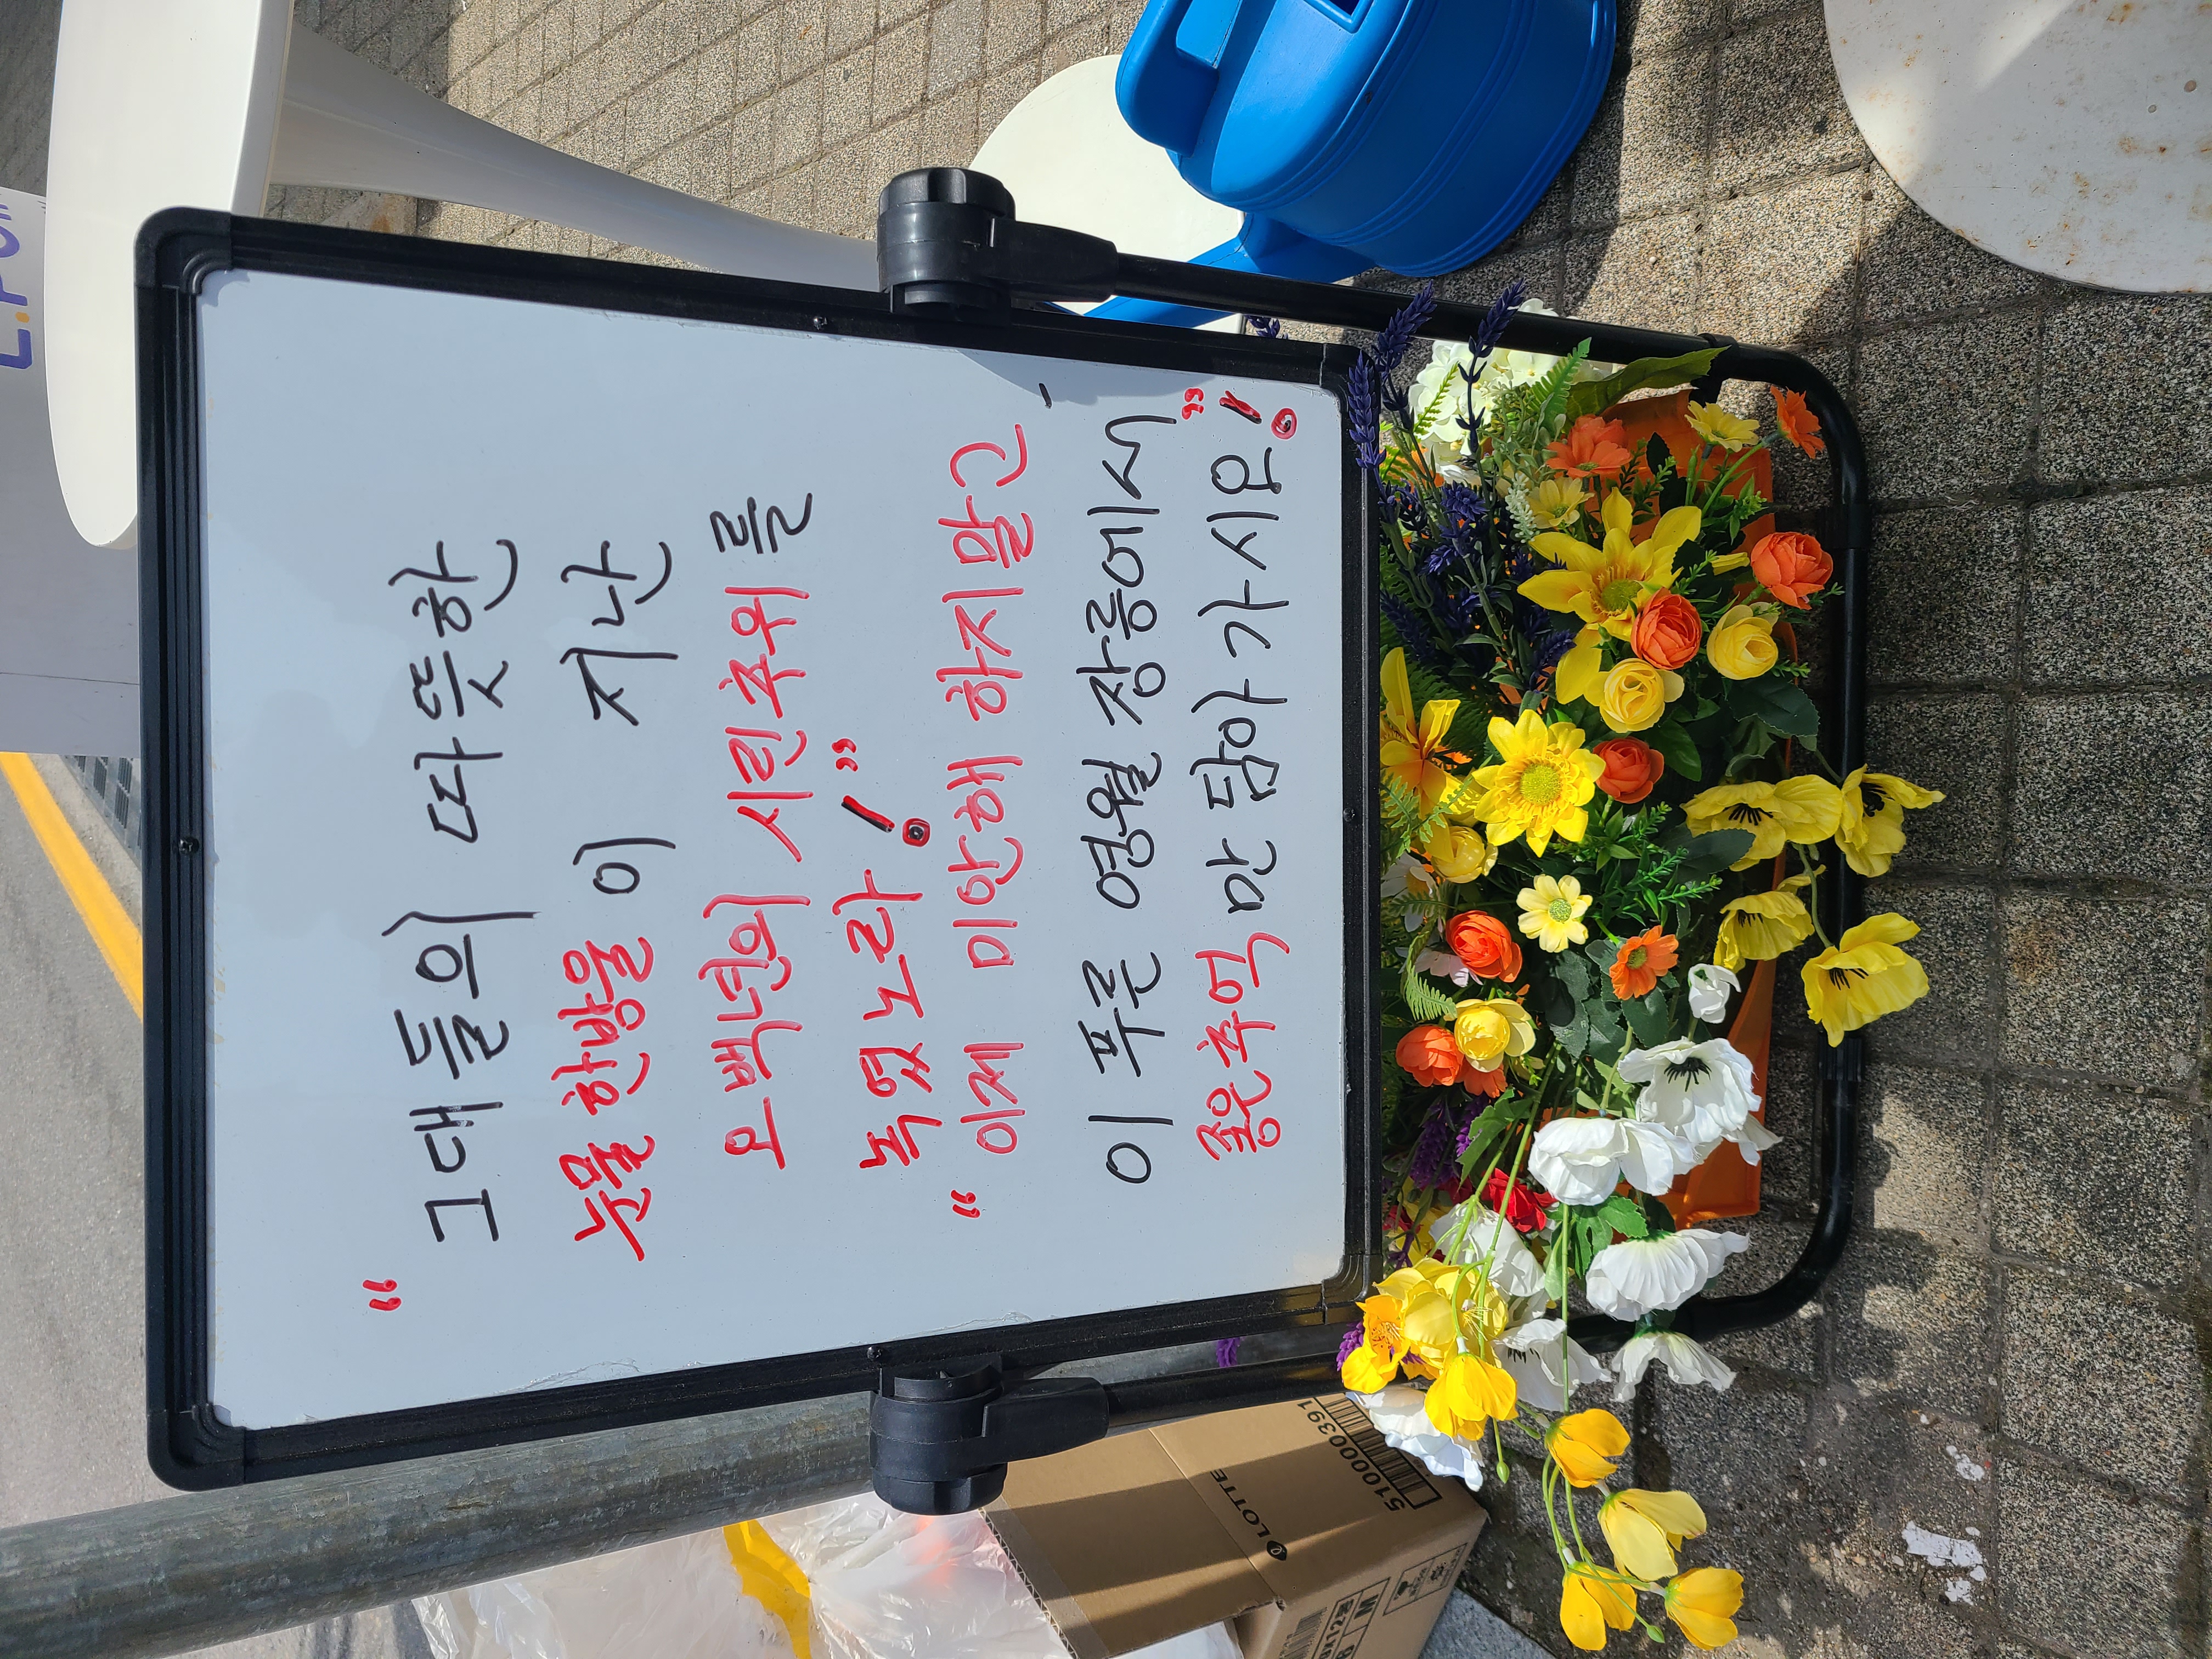 “ 그대들의 따뜻한
눈물 한방울이 지난
오백년의 시린추위를
녹였노라!”
“ 이제 미안해 하지말고
이 푸른 영월 장릉에서
좋은추억만 담아가시오”!
LOTTE
510000391